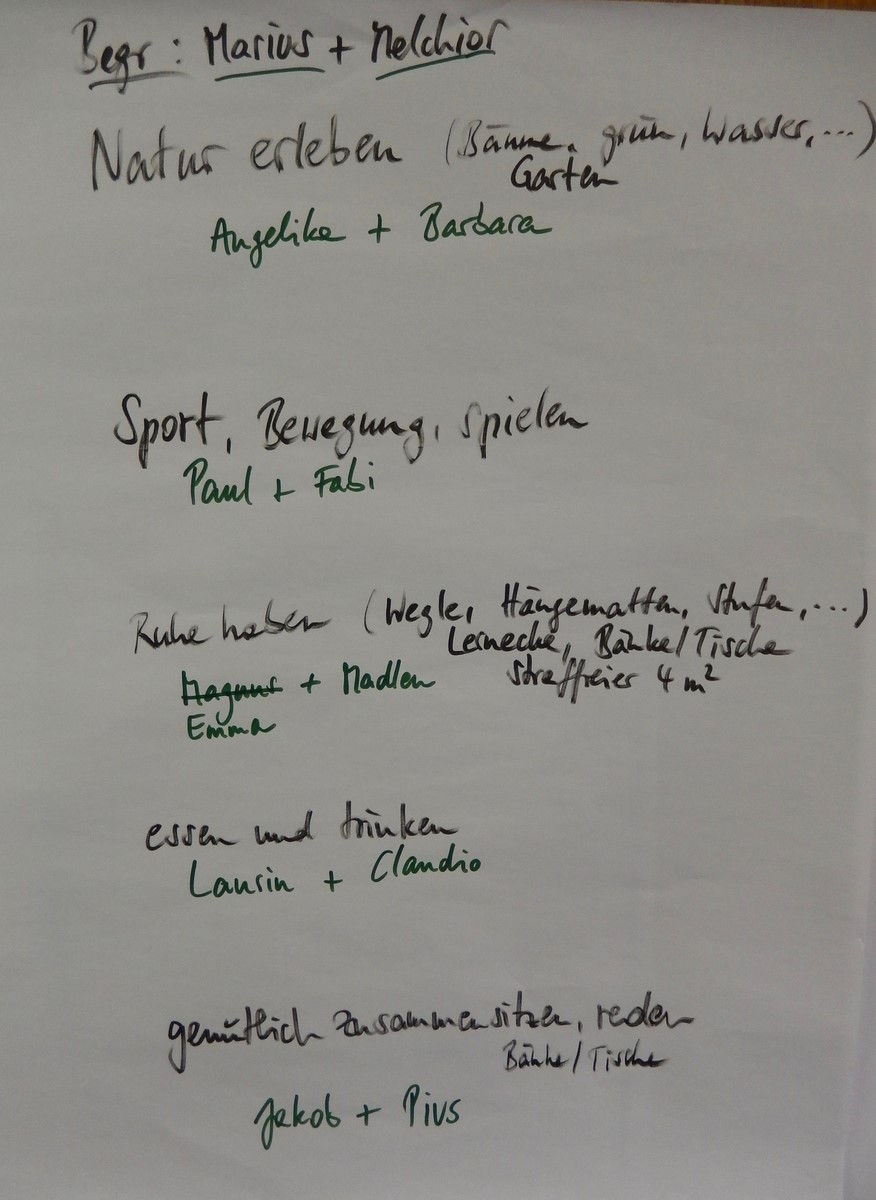 Begr: Marius + Melchior
Natur erleben (Bäume, grün, Wasser, ...)
Garten
Angelika + Barbara
Sport, Bewegung, spielen
Paul + Fabi
Ruhe haben (Wegle, Hängematten, Stufen, ...)
Lernecke, Bänke/Tische
Magnus + Madlen straffreier 4 m²
Emma
essen und trinken
Laurin + Claudio
gemütlich zusammensitzen, reden
Bänke/Tische
Jakob + Pius